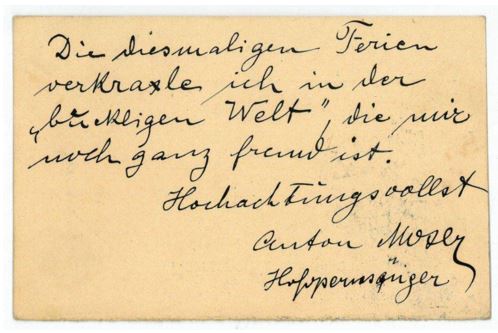 Die diesmaligen Ferien
verkraxle ich in der
„buckligen Welt", die mir
noch ganz fremd ist.
Hochachtungsvollst
Anton Moser
Hofopernsänger